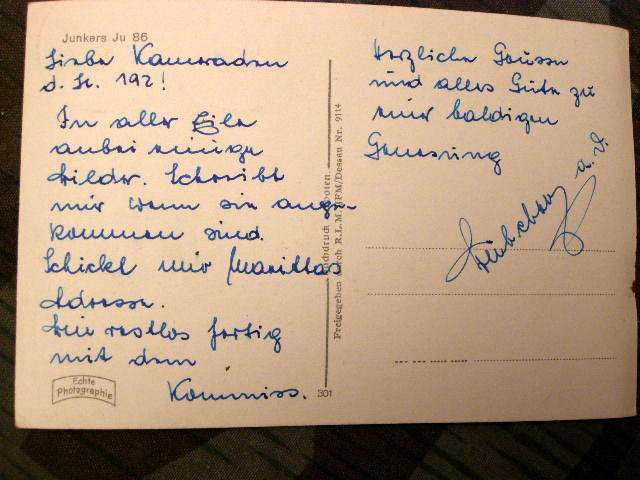 Junkers Ju 86
Liebe Kameraden
d. St. 192!
In aller Eile
anbei einige
Bilder. Schreibt
mir wenn sie ange-
kommen sind.
Schickt mir Marittas
Adresse.
Bin restlos fertig
mit dem
Kommiss.
Echte
Photographie
301
Nachdruck verboten.
Freigegeben durch R.L.M. /Dessau Nr. 9114
Herzliche Grüsse
und alles Gute zu
einer baldigen
Genesung
a. D.